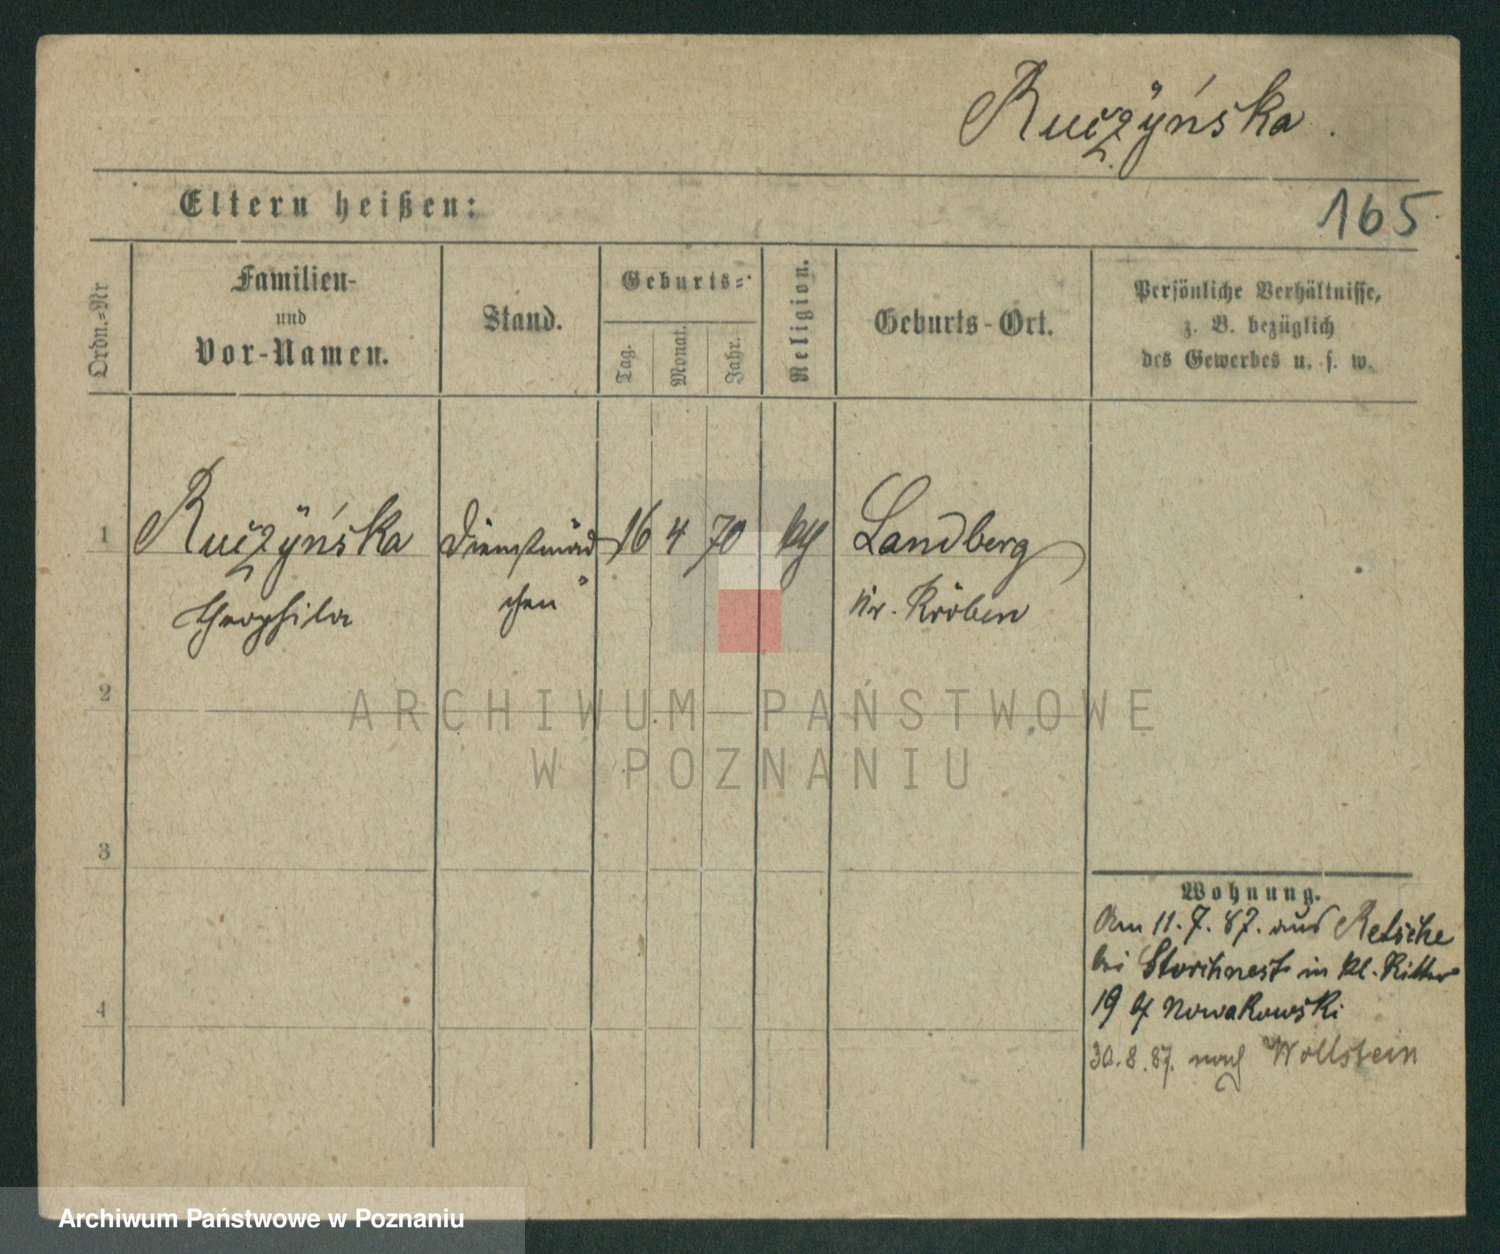 Ruczyńska.
Eltern heißen:
165
Ordn.-Nr
Familien-
und
Vor-Namen.
Stand.
Geburts-
Tag.
Monat.
Jahr.
Religion.
Geburts-Ort.
Persönliche Verhältnisse,
z. B. bezüglich
des Gewerbes u. s. w.
1
Ruczyńska
Dienstmäd
16 4 70
Landberg
Theophila
chen
Kr. Kröben
2
ARCHIWUM PAŃSTWOWE
W POZNANIU
3
Wohnung.
Am 11.7.87. aus Retschke
bei Storchnest in Kl. Ritter
19 Nowakowski
30.8.87. nach Wollstein
4
Archiwum Państwowe w Poznaniu